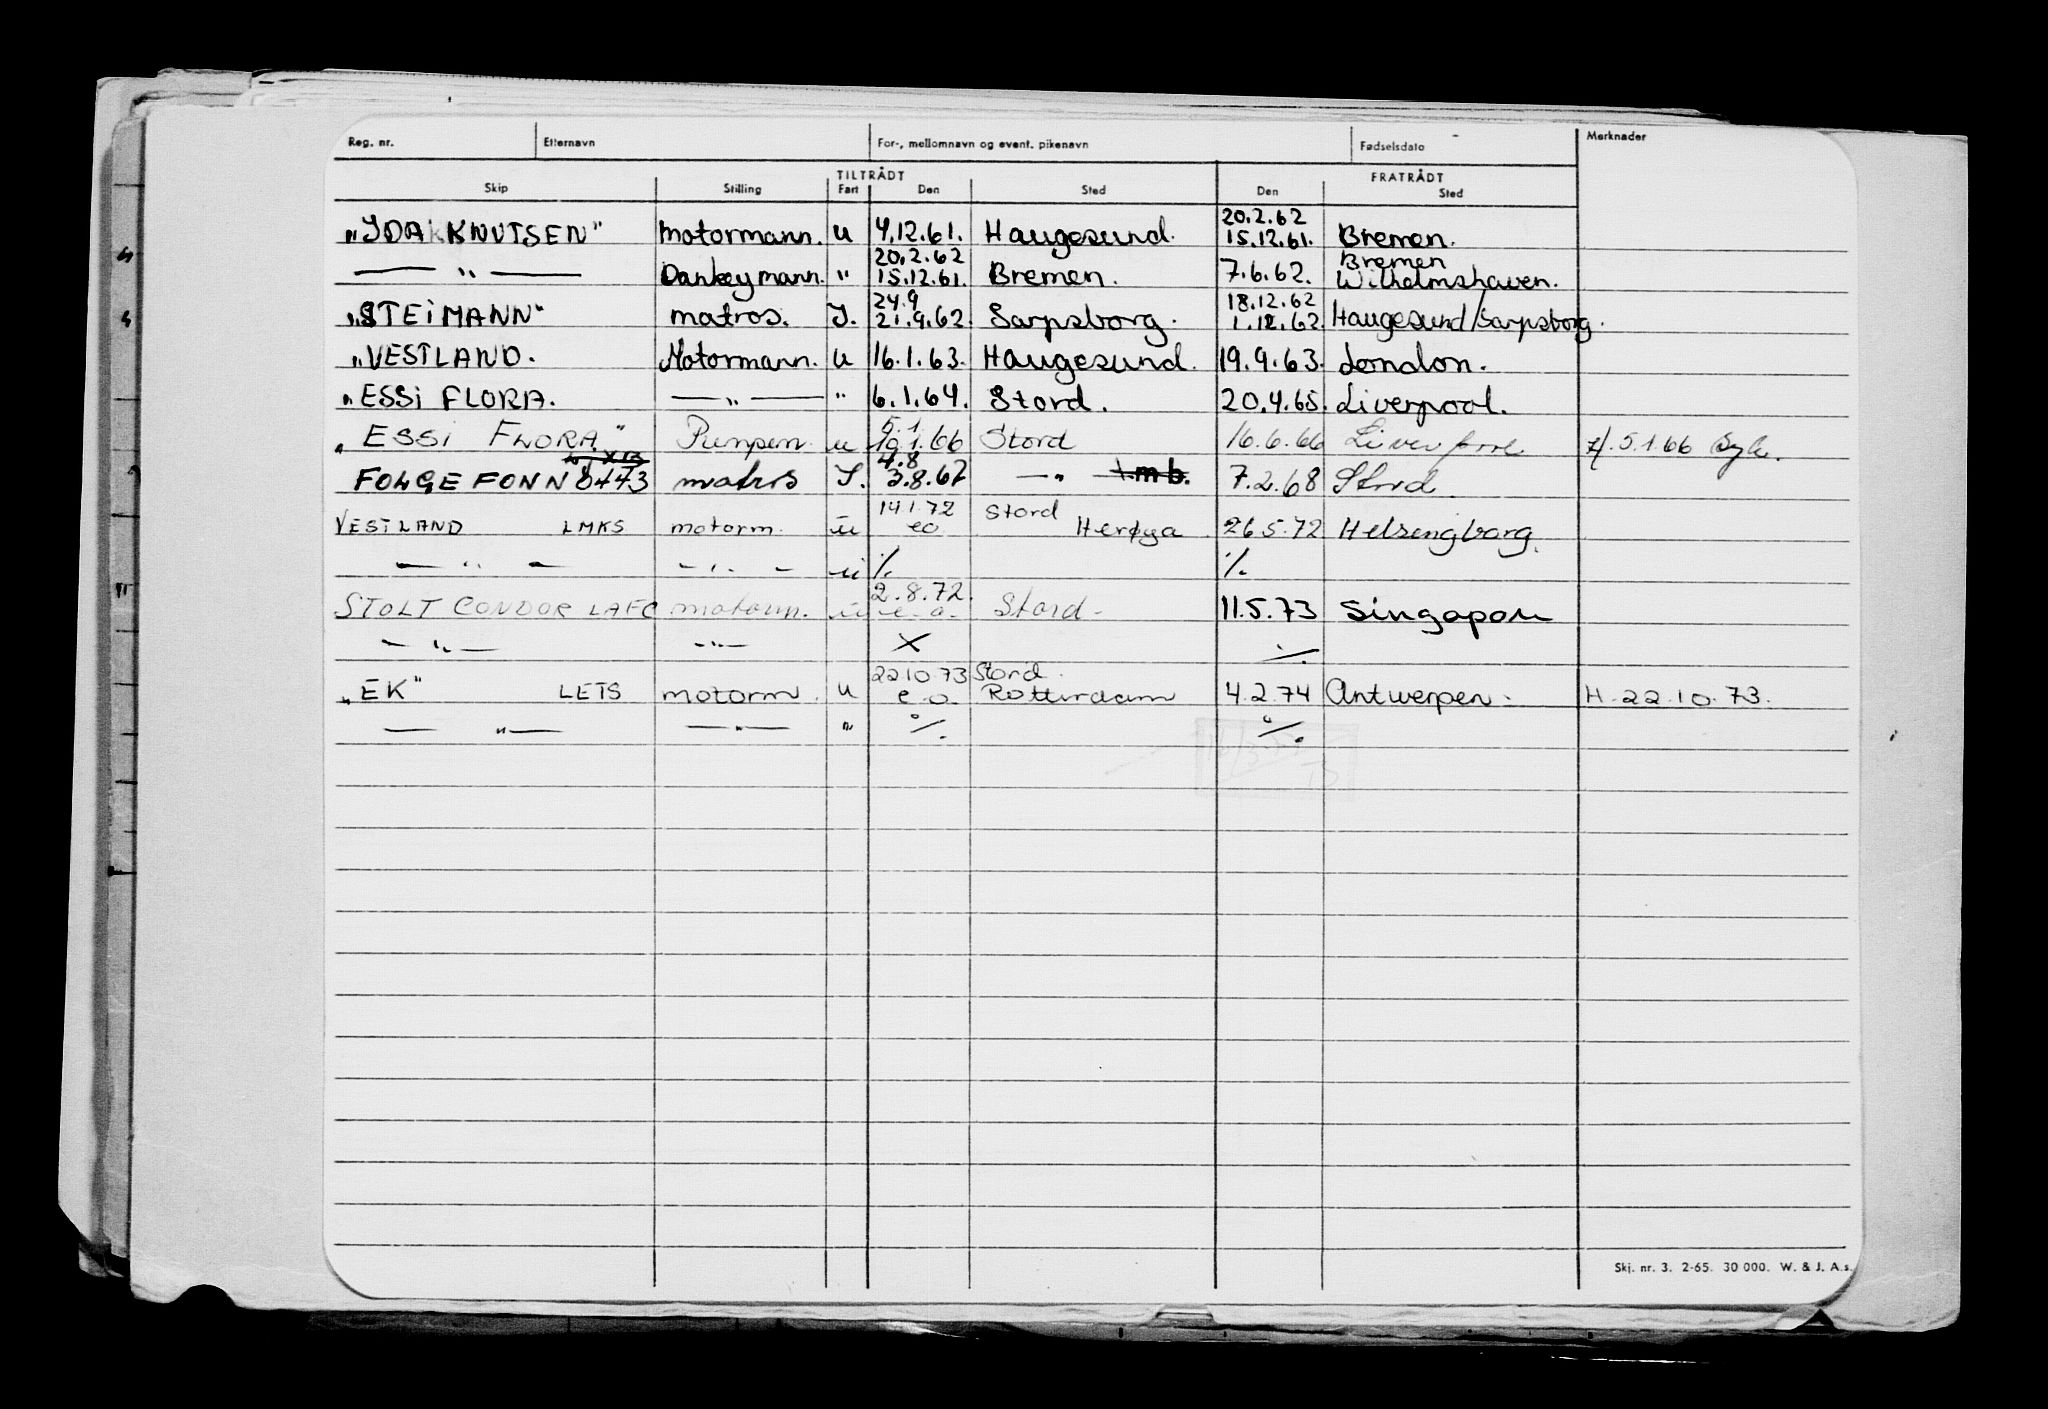 Reg. nr. Etternavn For-, mellomnavn og event. pikenavn Fødselsdato Merknader
TILTRÅDT FRATRÅDT
Skip Stilling Fart Den Sted Den Sted
20.2.62
"YDA KNUTSEN" motormann. u 4.12.61. Haugesund. 15.12.61. Bremen.
20.2.62 Bremen
— " — Dankeymann. " 15.12.61. Bremen. 7.6.62. Wilhelmshaven.
24.9 18.12.62
"STEiMANN" matros. I. 21.9.62. Sarpsborg. 1.12.62. Haugesund/Sarpsborg.
"VESTLAND. Motormann. u 16.1.63. Haugesund. 19.9.63. London.
"ESSi FLORA. — " — " 6.1.64. Stord. 20.4.65. Liverpool.
5.1
"ESSi FLORA" Pumpem. u 10.1.66 Stord 16.6.66 Liverpool 5.1.66
4.8
FOLGEFONN 8473 matros I. 3.8.67 — " — 7.2.68 Stord.
14.1.72 Stord
VESTLAND LMKS motorm. u eo Herøya 26.5.72 Helsingborg.
— " — — " — u %. %.
2.8.72.
STOLT CONDOR LAFC motorm. u e.o. Stord - 11.5.73 Singapore
— " — — " — X %.
22.10.73 Stord.
"EK" LETS motorm. u e.o. Rotterdam 4.2.74 Antwerpen. H. 22.10.73.
— " — — " — " %. %.
Skj. nr. 3. 2-65. 30 000. W. & J. A.s.